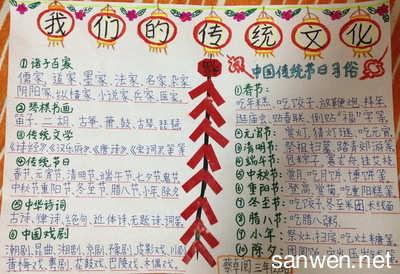 我们的传统文化
①诸子百家
儒家、道家、墨家、法家、名家、杂家、
阴阳家、纵横家、小说家、兵家、医家
②琴棋书画
笛子、二胡、古筝、箫、鼓、古琴、琵琶
③传统文学
《诗经》《汉乐府》《唐诗》《宋词》等等
④传统节日
春节、元宵节、清明节、端午节、七夕节、鬼节
中秋节、重阳节、冬至节、腊八节、小年、除夕
⑤中华诗词
古诗、律诗、绝句、近体诗、无题诗、词
⑥中国戏剧
潮剧、昆曲、湘剧、京剧、皮影戏、川剧
黄梅戏、粤剧、花鼓戏、巴陵戏、木偶戏
中国传统节日习俗
①春节：
吃年糕、吃饺子、放鞭炮、拜年
逛庙会、贴春联、倒贴"福"字等
②元宵节：赏灯、猜灯谜、吃元宵
③清明节：祭祖扫墓、踏青郊游等
④端午节：包粽子、赛龙舟、挂艾枝
⑤中秋节：赏月、吃月饼、博饼等
⑥重阳节：登高、赏菊、吃重阳糕等
⑦冬至节：吃饺子、冬至米团、长线面
⑧腊八节：吃腊八粥
⑨小年：祭灶、扫尘、吃灶糖等
⑩除夕：
sanwen.net